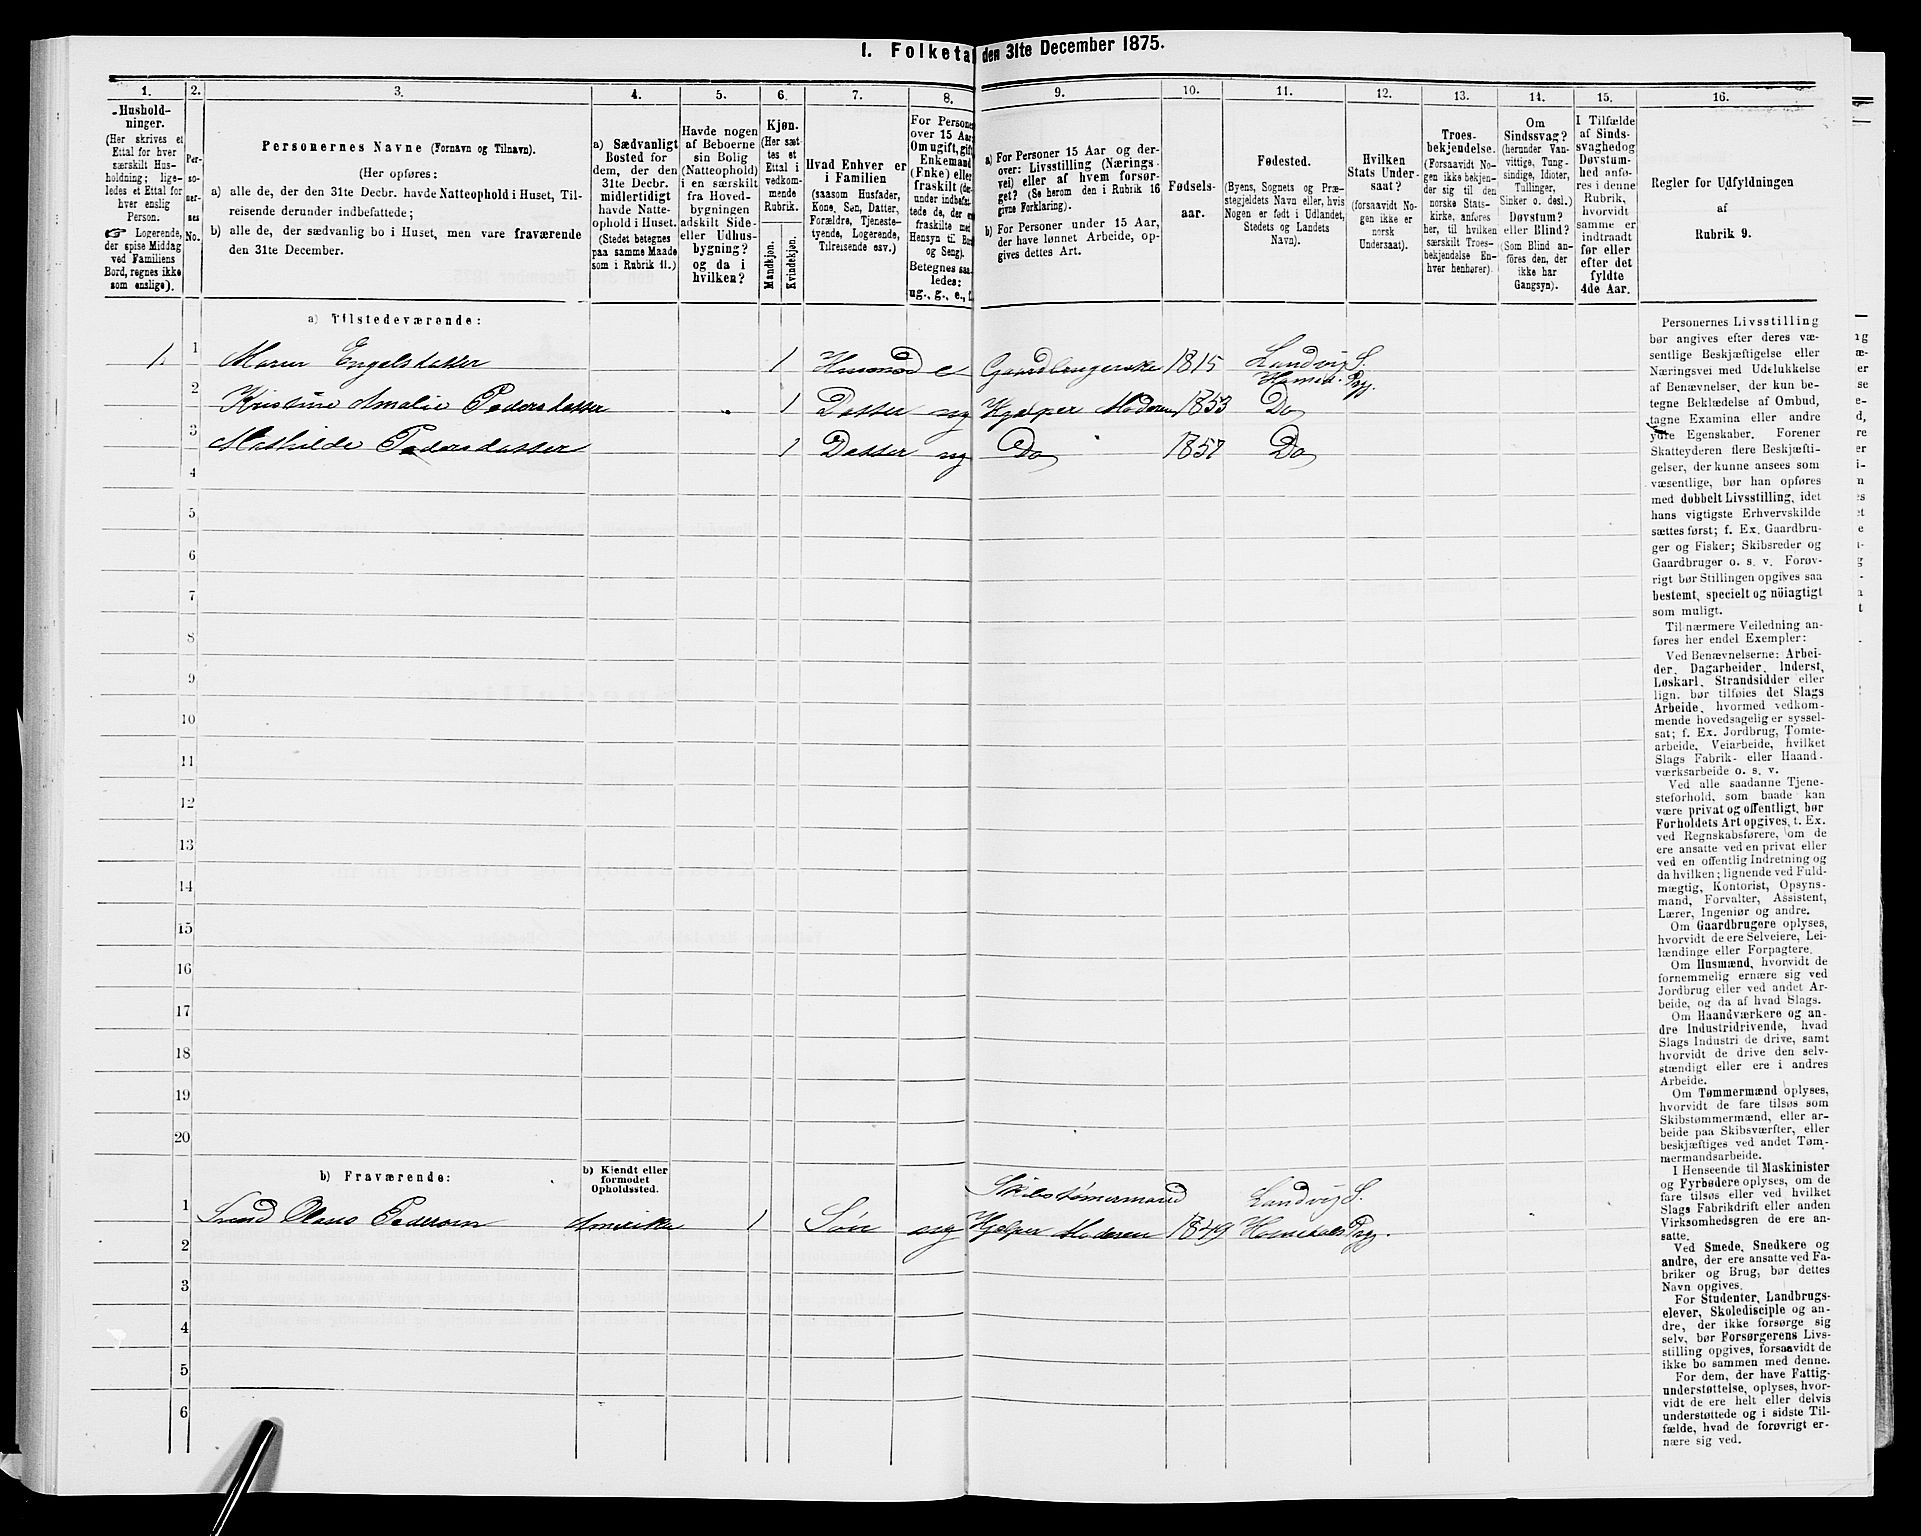 I. Folketal den 31te December 1875.
1. 2. 3. 4. 5. 6. 7. 8. 9. 10. 11. 12. 13. 14. 15. 16.
Hushold-
ninger.
(Her skrives et
Ettal for hver
særskilt Hus-
holdning; lige-
ledes et Ettal for
hver enslig
Person.
☞ Logerende,
der spise Middag
ved Familiens
Bord, regnes ikke
som enslige).
Per-
so-
ner-
nes
No.
Personernes Navne (Fornavn og Tilnavn).
(Her opføres:
a) alle de, der den 31te Decbr. havde Natteophold i Huset, Til-
reisende derunder indbefattede;
b) alle de, der sædvanlig bo i Huset, men vare fraværende
den 31te December.
a) Sædvanligt
Bosted for
dem, der den
31te Decbr.
midlertidigt
havde Natte-
ophold i Huset.
(Stedet betegnes
paa samme Maade
som i Rubrik 11.)
Havde nogen
af Beboerne
sin Bolig
(Natteophold)
i en særskilt
fra Hoved-
bygningen
adskilt Side-
eller Udhus-
bygning?
og da i
hvilken?
Kjøn.
(Her sæt-
tes et
Ettal i
vedkom-
mende
Rubrik.
Mandkjøn.
Kvindekjøn.
Hvad Enhver er
i Familien
(saasom Husfader,
Kone, Søn, Datter,
Forældre, Tjeneste-
tyende, Logerende,
Tilreisende osv.)
For Personer
over 15 Aar:
Om ugift, gift,
Enkemand
(Enke) eller
fraskilt
Betegnes saa-
ledes:
ug., g., e., f.
a) For Personer 15 Aar og der-
over: Livsstilling (Nærings-
vei) eller af hvem forsør-
get? (Se herom den i Rubrik 16
givne Forklaring).
b) For Personer under 15 Aar,
der have lønnet Arbeide, op-
gives dettes Art.
Fødsels-
aar.
Fødested.
(Byens, Sognets og Præ-
stegjeldets Navn eller, hvis
Nogen er født i Udlandet,
Stedets og Landets
Navn).
Hvilken
Stats Under-
saat?
(forsaavidt No-
gen ikke er
norsk
Undersaat).
Troes-
bekjendelse.
(Forsaavidt No-
gen ikke bekjen-
der sig til den
norske Stats-
kirke, anføres
her, til hvilken
særskilt Troes-
bekjendelse En-
hver henhører).
Om
Sindssvag?
(herunder Van-
vittige, Tung-
sindige, Idioter,
Tullinger,
Sinker o. desl.)
Døvstum?
eller Blind?
(Som Blind an-
føres den, der
ikke har
Gangsyn).
I Tilfælde
af Sinds-
svaghed og
Døvstum-
hed anfø-
res i denne
Rubrik,
hvorvidt
samme er
indtraadt
før eller
efter det
fyldte
4de Aar.
Regler for Udfyldningen
af
Rubrik 9.
a) Tilstedeværende:
1. 1 Maren Engelsdatter 1 Husmod e Gaardbrugerske 1815 Landvig S.
Homed. Pgj.
2 Kristine Amalie Pedersdatter 1 Datter ug Hjælper Moderen 1853 Do
3 Mathilde Pedersdatter 1 Datter ug Do 1857 Do
4
5
6
7
8
9
10
11
12
13
14
15
16
17
18
19
20
b) Fraværende:
b) Kjendt eller
formodet
Opholdssted.
Skibstømermand Landvig S.
1 Svend Olaus Pedersen Amerika 1 Søn ug Hjælper Moderen 1849 Homedals Pgj.
2
3
4
5
6
Personernes Livsstilling
bør angives efter deres væ-
sentlige Beskjæftigelse eller
Næringsvei med Udelukkelse
af Benævnelser, der kun be-
tegne Beklædelse af Ombud,
tagne Examina eller andre
ydre Egenskaber. Forener
Skatteyderen flere Beskjæfti-
gelser, der kunne ansees som
væsentlige, bør han opføres
med dobbelt Livsstilling, idet
hans vigtigste Erhvervskilde
sættes først; f. Ex. Gaardbru-
ger og Fisker; Skibsreder og
Gaardbruger o. s. v. Forøv-
rigt bør Stillingen opgives saa
bestemt, specielt og nöiagtigt
som muligt.
Til nærmere Veiledning an-
føres her endel Exempler:
Ved Benævnelserne: Arbei-
der, Dagarbeider, Inderst,
Løskarl, Strandsidder eller
lign. bør tilføies det Slags
Arbeide, hvormed vedkom-
mende hovedsagelig er syssel-
sat; f. Ex. Jordbrug, Tomte-
arbeide, Veiarbeide, hvilket
Slags Fabrik- eller Haand-
værksarbeide o. s. v.
Ved alle saadanne Tjene-
steforhold, som baade kan
være privat og offentligt, bør
Forholdets Art opgives, t. Ex.
ved Regnskabsførere, om de
ere ansatte ved en privat eller
ved en offentlig Indretning og
da hvilken; lignende ved Fuld-
mægtig, Kontorist, Opsyns-
mand, Forvalter, Assistent,
Lærer, Ingeniør og andre.
Om Gaardbrugere oplyses,
hvorvidt de ere Selveiere, Lei-
lændinge eller Forpagtere.
Om Husmænd, hvorvidt de
fornemmelig ernære sig ved
Jordbrug eller ved andet Ar-
beide, og da af hvad Slags.
Om Haandværkere og an-
dre Industridrivende, hvad
Slags Industri de drive, samt
hvorvidt de drive den selv-
stændigt eller ere i andres
Arbeide.
Om Tømmermænd oplyses,
hvorvidt de fare tilsøs som
Skibstømmermænd, eller ar-
beide paa Skibsværfter, eller
beskjæftiges ved andet Tøm-
mermandsarbeide.
I Henseende til Maskinister
og Fyrbødere oplyses, om de
fare tilsøs eller ved hvilket
Slags Fabrikdrift eller anden
Virksomhedsgren de ere an-
satte.
Ved Smede, Snedkere og
andre, der ere ansatte ved Fa-
briker og Brug, bør dettes
Navn opgives.
For Studenter, Landbrugs-
elever, Skoledisciple og an-
dre, der ikke forsørge sig
selv, bør Forsørgerens Livs-
stilling opgives, forsaavidt de
ikke bo sammen med denne.
For dem, der have Fattig-
understøttelse, oplyses, hvor-
vidt de ere helt eller delvis
understøttede og i sidste Til-
fælde, hvad de forøvrigt er-
nære sig ved.